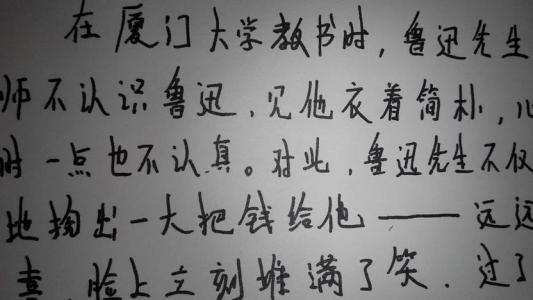 在厦门大学教书时，鲁迅先生
师不认识鲁迅，见他衣着简朴，心
时一点也不认真。对此，鲁迅先生不仅
地掏出一大把钱给他——远远
喜，脸上立刻堆满了笑。过了